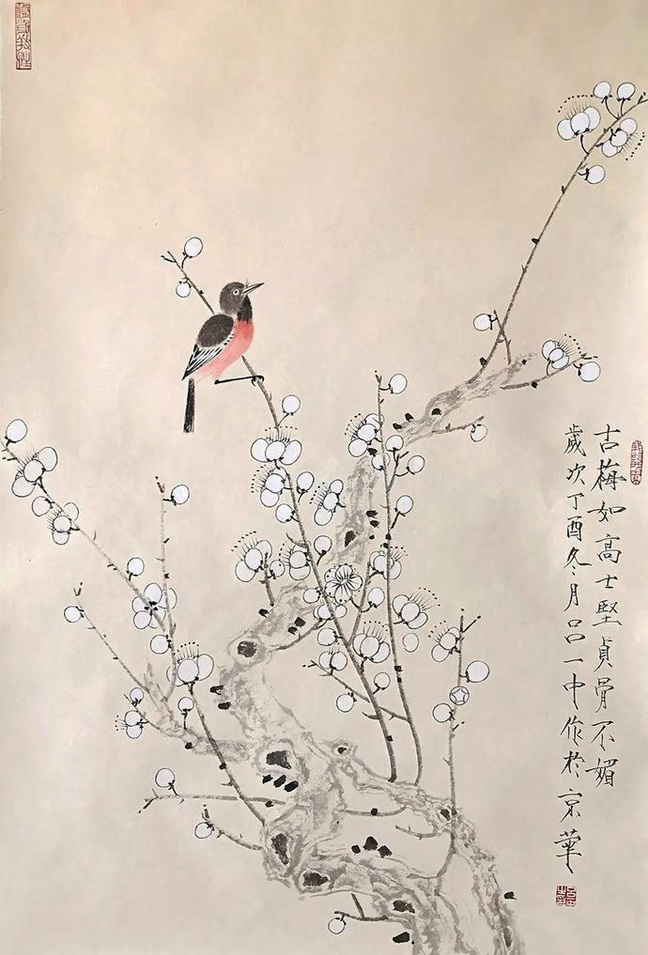 古梅如高士堅貞骨不媚
歲次丁酉冬月呂一中作於京華